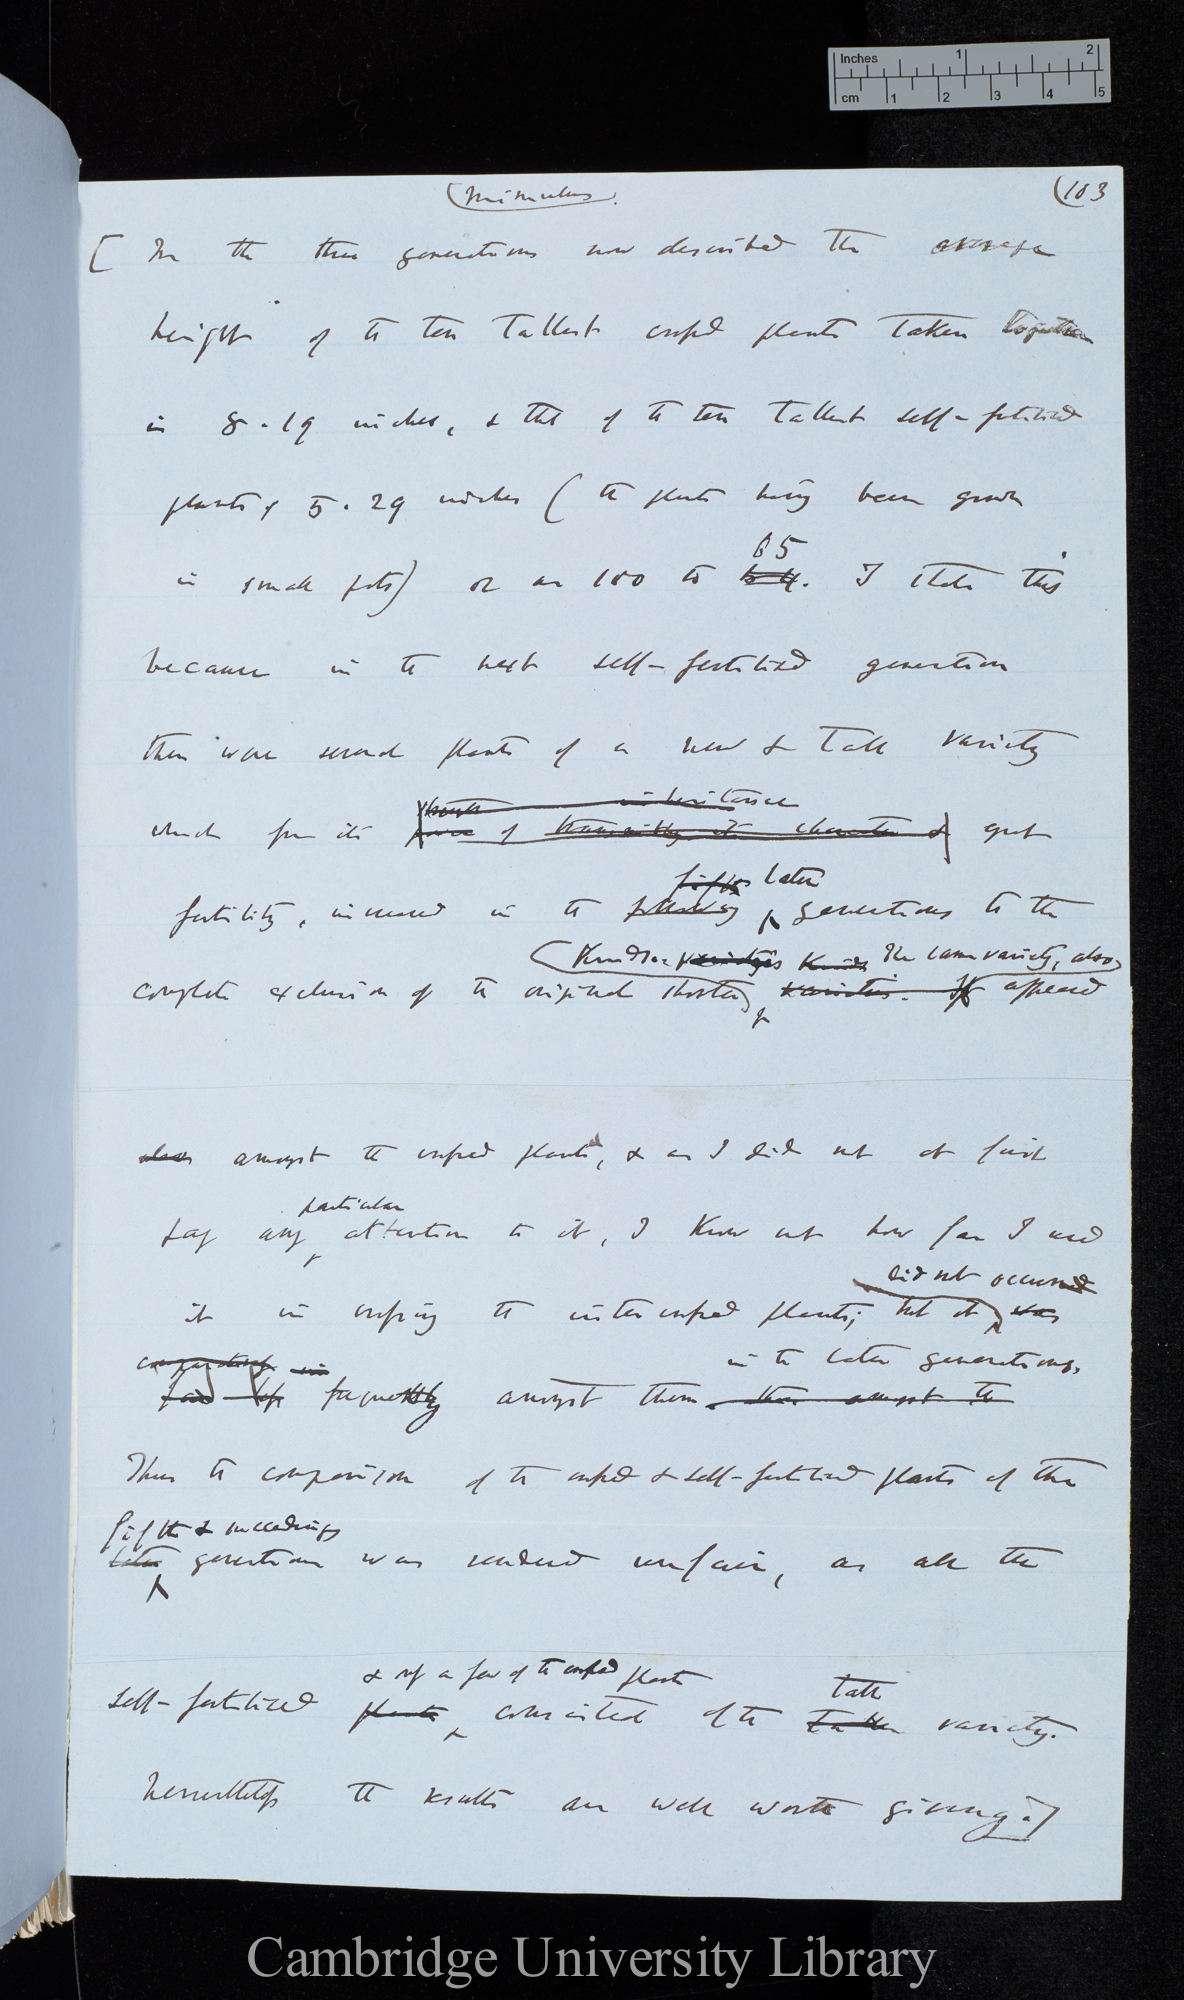 Inches 1 2
cm 1 2 3 4 5
(Mimulus.
(103
[ In the three generations now described the average
height of the ten tallest crossed plants taken together
is 8.19 inches, & that of the ten tallest self-fertilised
plants 5.29 inches (the plants having been grown
65
in small pots) or as 100 to 64. I state this
because in the next self-fertilised generation
there were several plants of a new & tall variety
inheritance
which from its power of transmitting its character & great
fifth later
fertility, increased in the following generations to the
Kinds. varieties kinds The same variety, also
complete exclusion of the original shorter varieties. It appeared
also amongst the crossed plants, & as I did not at first
particular
pay any attention to it, I know not how far I used
did not occurred
it in crossing the intercrossed plants; but it was
comparatively in in the later generations.
far less frequently amongst them than amongst the
Thus the comparison of the crossed & self-fertilised plants of the
fifth & succeeding
later generations was rendered unfair, as all the
& only a few of the crossed plants tall
self-fertilised plants consisted of the taller variety.
Nevertheless the results are well worth giving.]
Cambridge University Library